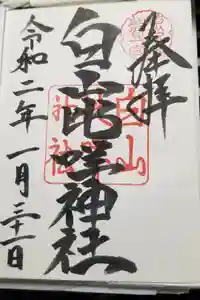 奉拝
白山比咩神社
令和二年一月三十一日